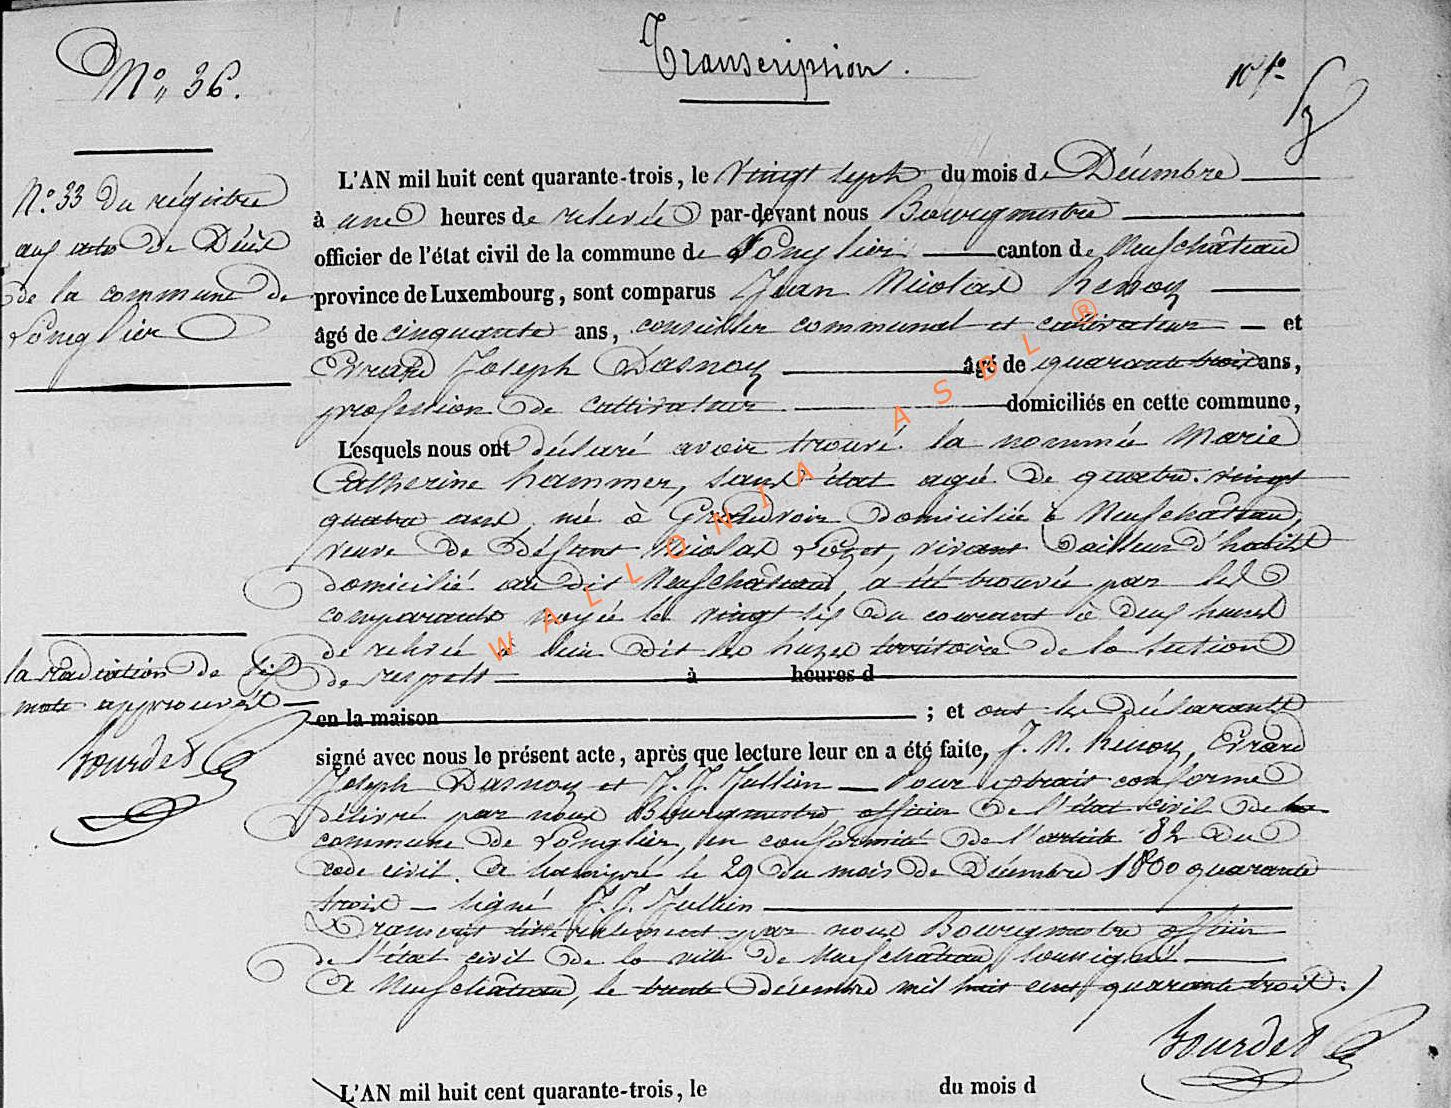 Transcription.
Nº 36.
Nº 33 du régistre
aux actes de Décès
de la commune de
Longlier
L'AN mil huit cent quarante-trois, le vingt sept du mois de Décembre
à une heures de relevée par-devant nous Bourgmestre
officier de l'état civil de la commune de Longlier canton de Neufchâteau
province de Luxembourg, sont comparus Jean Nicolas Renoy
âgé de cinquante ans, conseiller communal et cultivateur et
Evrard Joseph Dasnoy âgé de quarante trois ans,
profession de cultivateur domiciliés en cette commune,
Lesquels nous ont déclaré avoir trouvé la nommée Marie
Catherine hammer, sans état agé de quatre vingt
quatre ans, né à Grandvoir domiciliée à Neufchâteau,
veuve de défunt Nicolas, vivant tailleur d'habits
domicilié au dit Neufchâteau, a été trouvée par les
comparants noyée le vingt six du courant à deux heures
de relevée à lieu dit les territoire de la section
de respelt à heures d
en la maison ; et ont les déclarants
signé avec nous le présent acte, après que lecture leur en a été faite, J. N. Renoy, Evrard
Joseph Dasnoy et J. J. Jullien Pour extrait conforme
délivré par nous Bourgmestre officier de l'état civil de la
commune de Longlier, en conformité de l'article 82 du
code civil. A hamipré le 29 du mois de Décembre 1800 quarante
trois signé J. J. Jullien
Transcrit littéralement par nous Bourgmestre officier
de l'état civil de la ville de Neufchâteau soussigné
A Neufchâteau, le trente décembre mil huit cent quarante trois.
Bourdet
la radiation de six
mots approuvée
Bourdet
L'AN mil huit cent quarante-trois, le du mois d
WALLONIA ASBL ®